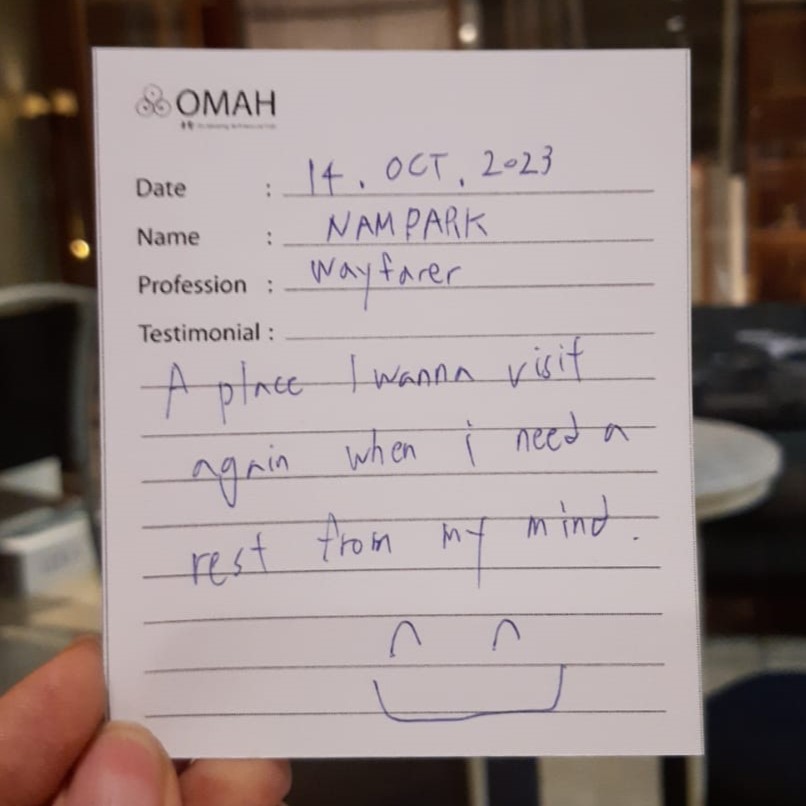 OMAH
Date : 14. OCT. 2023
Name : NAM PARK
Profession : Wayfarer
Testimonial :
A place I wanna visit
again when i need a
rest from my mind.